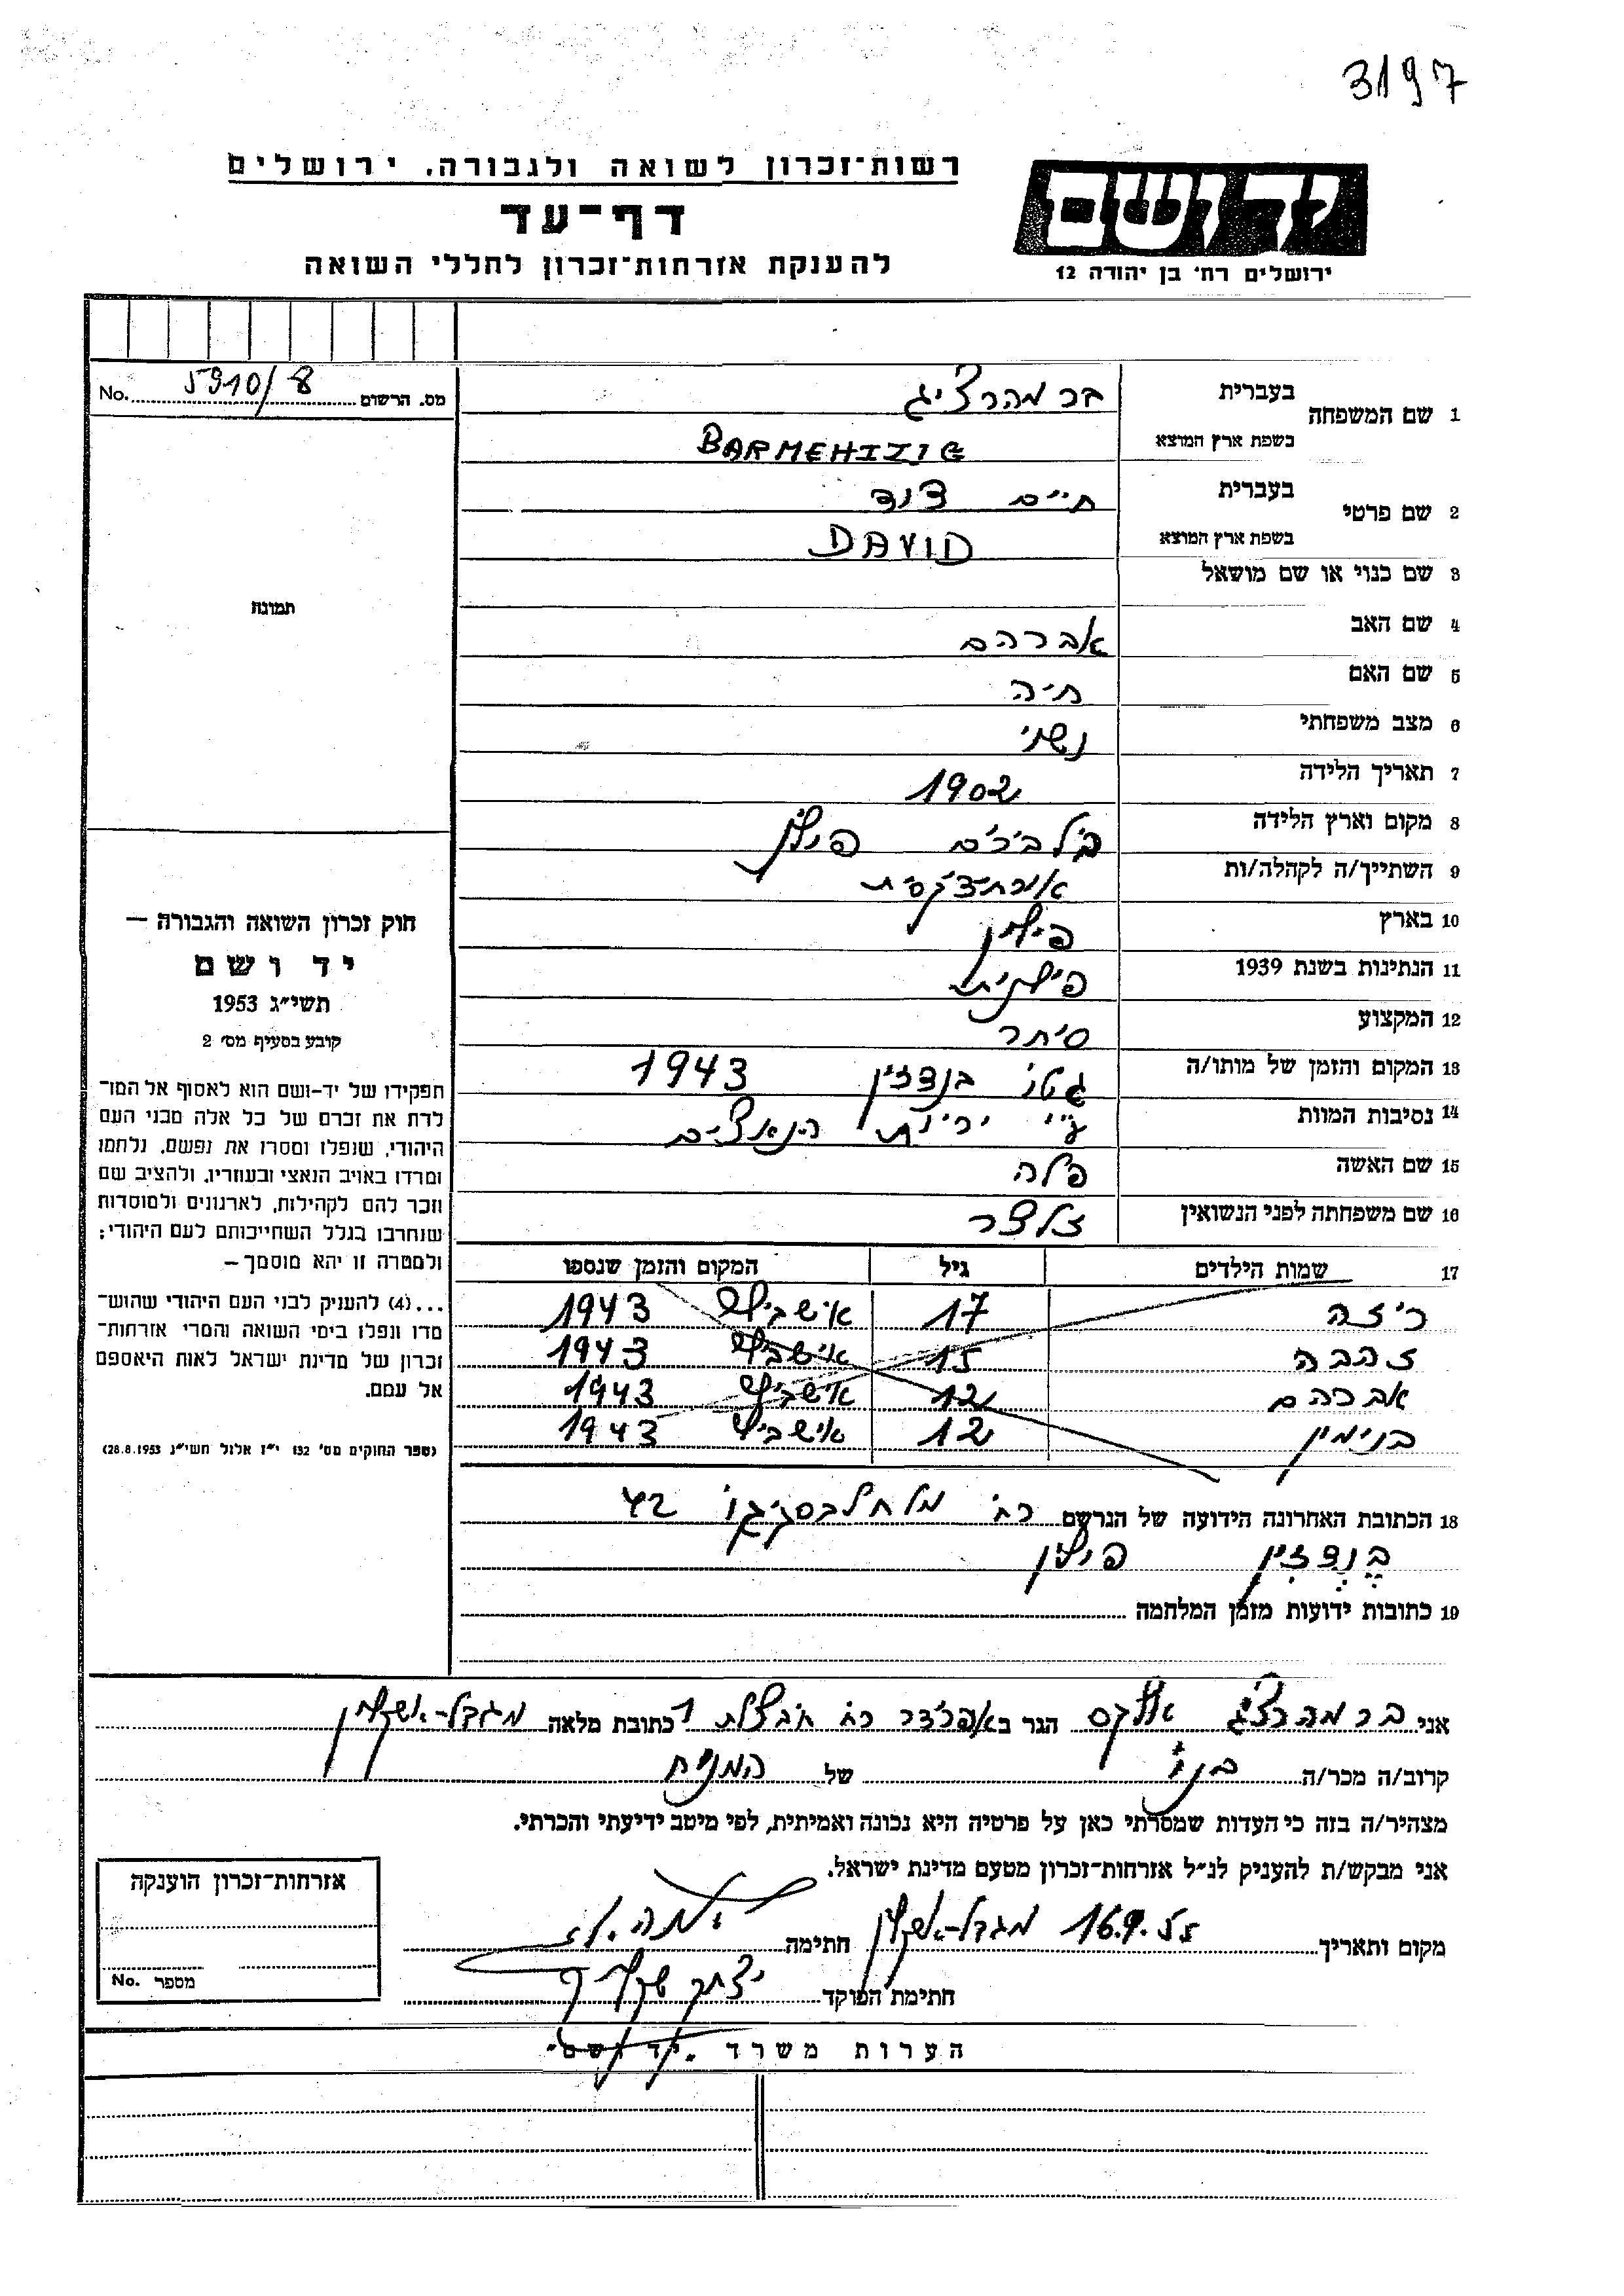 3197
רשות־זכרון לשואה ולגבורה, ירושלים
דף־עד
להענקת אזרחות־זכרון לחללי השואה
יד ושם
ירושלים רח׳ בן יהודה 12
מס. הרשום 5910/8 No.
1 שם המשפחה בעברית בר מהרציג
בשפת ארץ המוצא BARMEHIZIG
2 שם פרטי בעברית חיים דוד
בשפת ארץ המוצא DAVID
3 שם כנוי או שם מושאל
4 שם האב אברהם
5 שם האם חיה
6 מצב משפחתי נשוי
7 תאריך הלידה 1902
8 מקום וארץ הלידה פולין
9 השתייך/ה לקהלה/ות
10 בארץ פולין
11 הנתינות בשנת 1939 פולנית
12 המקצוע סוחר
13 המקום והזמן של מותו/ה גטו בנדזין 1943
14 נסיבות המוות ע״י יריות הנאצים
15 שם האשה פלה
16 שם משפחתה לפני הנשואין זלצר
17 שמות הילדים גיל המקום והזמן שנספו
ריזה 17 אושביץ 1943
זהבה 15 אושביץ 1943
אברהם 12 אושביץ 1943
בנימין 12 אושביץ 1943
18 הכתובת האחרונה הידועה של הנרשם רח׳ 42
בנדזין פולין
19 כתובות ידועות מזמן המלחמה
תמונה
חוק זכרון השואה והגבורה —
יד ושם
תשי״ג 1953
קובע בסעיף מס׳ 2
תפקידו של יד־ושם הוא לאסוף אל המו־
לדת את זכרם של כל אלה מבני העם
היהודי, שנפלו ומסרו את נפשם, נלחמו
ומרדו באויב הנאצי ובעוזריו, ולהציב שם
וזכר להם לקהילות, לארגונים ולמוסדות
שנחרבו בגלל השתייכותם לעם היהודי;
ולמטרה זו יהא מוסמך —
...(4) להענק לבני העם היהודי שהוש־
מדו ונפלו בימי השואה והמרי אזרחות־
זכרון של מדינת ישראל לאות היאספם
אל עמם.
(ספר החוקים מס׳ 132 י״ז אלול תשי״ג 28.8.1953)
אני בר מהרציג הגר באפרידר רח׳ חבצלת 1 כתובת מלאה מגדל־אשקלון
קרוב/ה מכר/ה בנו של המנוח
מצהיר/ה בזה כי העדות שמסרתי כאן על פרטיה היא נכונה ואמיתית, לפי מיטב ידיעתי והכרתי.
אני מבקש/ת להעניק לנ״ל אזרחות־זכרון מטעם מדינת ישראל.
מקום ותאריך מגדל־אשקלון 16.9.55 חתימה
חתימת הפוקד יצחק
אזרחות־זכרון הוענקה
מספר No.
הערות משרד „יד ושם״